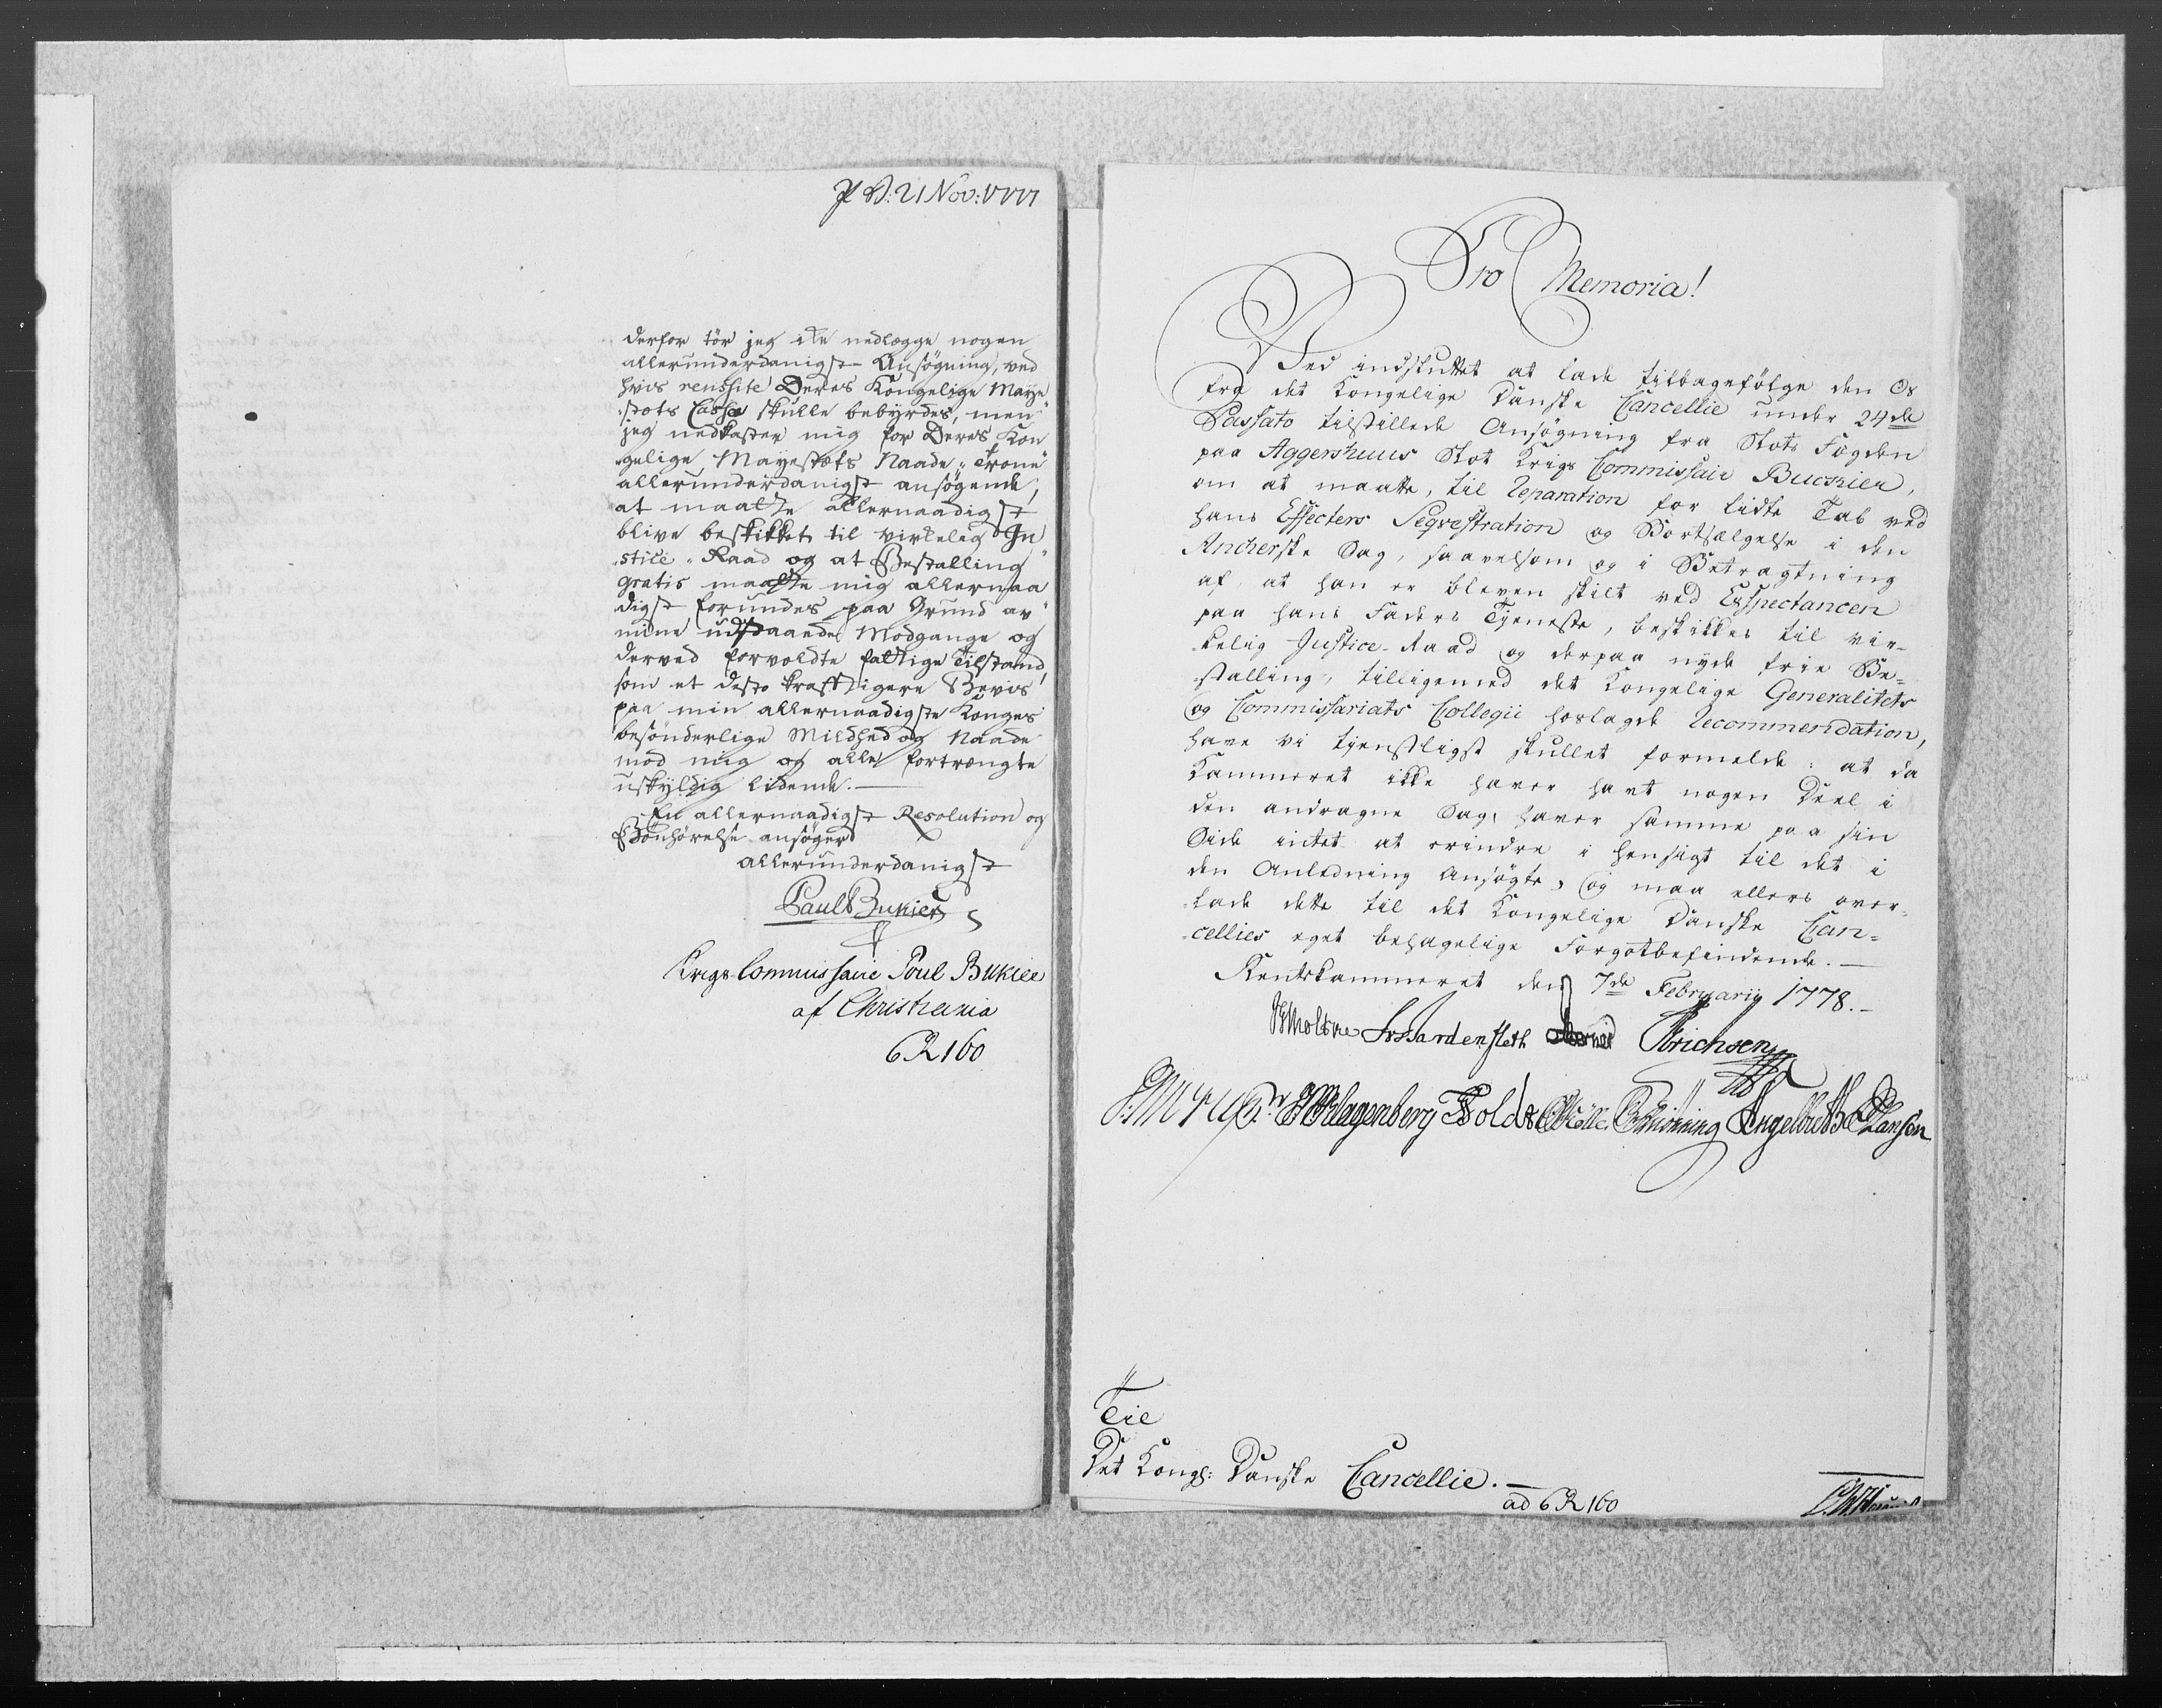 21 Nov: 1777
derfor tör jeg ikke nedlægge nogen
allerunderdanigst Ansøgning, ved
hvis reussite Deres Kongelige Maye
stæts Cassa skulle bebyrdes, men
jeg nedkaster mig for Deres Kon
gelige Mayestæts Naade-Trone
allerunderdanigst ansøgende,
at maatte allernaadigst
blive beskikket til virkelig Ju
stice-Raad og at Bestalling
gratis maatte mig allernaa
digst forundes paa Grund av
mine udstaaende Modgange og
derved forvoldte fattige Tilstand,
som et desto krafftigere Bevis
paa min allernaadigste Konges
besönderlige Mildhed og Naade
mod mig og alle fortrængte
uskyldig lidende.—
En allernaadigst Resolution og
Bönhørelse ansøger
allerunderdanigst
Paul Bukier
Krigs-Commissaire Poul Bukier
af Christiania
6 R 160
Pro Memoria!
Ved indsluttet at lade tilbagefölge den Os
fra det Kongelige Danske Cancellie under 24de
Passato tilstillede Ansøgning fra Slots Fogden
paa Aggershuus Slot Krigs Commissair Buckier,
om at maatte, til Reparation for lidte Tab ved
hans Effecters Seqvestration og Bortsælgelse i den
Ancherske Sag, saavelsom og i Betragtning
af at han er bleven skilt ved Exspectancen
paa hans Faders Tjeneste, beskikkes til vir-
kelig Justice-Raad og derpaa nyde frie Be-
stalling, tilligemed det Kongelige Generalitets
og Commissariats Collegii hoslagde Recommendation,
have vi tjenstligst skullet formelde: at da
Kammeret ikke haver havt nogen Deel i
den andragne Sag, haver samme paa sin
Side intet at erindre i hensigt til det i
den Anledning Ansøgte, og maa ellers over-
lade dette til det Kongelige Danske Can-
cellies eget behagelige Forgotbefindende.—
Rentekammeret den 7de Februarii 1778.-
JGMoltke Hardenfleth Erichsen
Klagenberg Holdt Möller Engelbreth Hansen
Til
Det Kongl: Danske Cancellie.—
ad 6 R 160